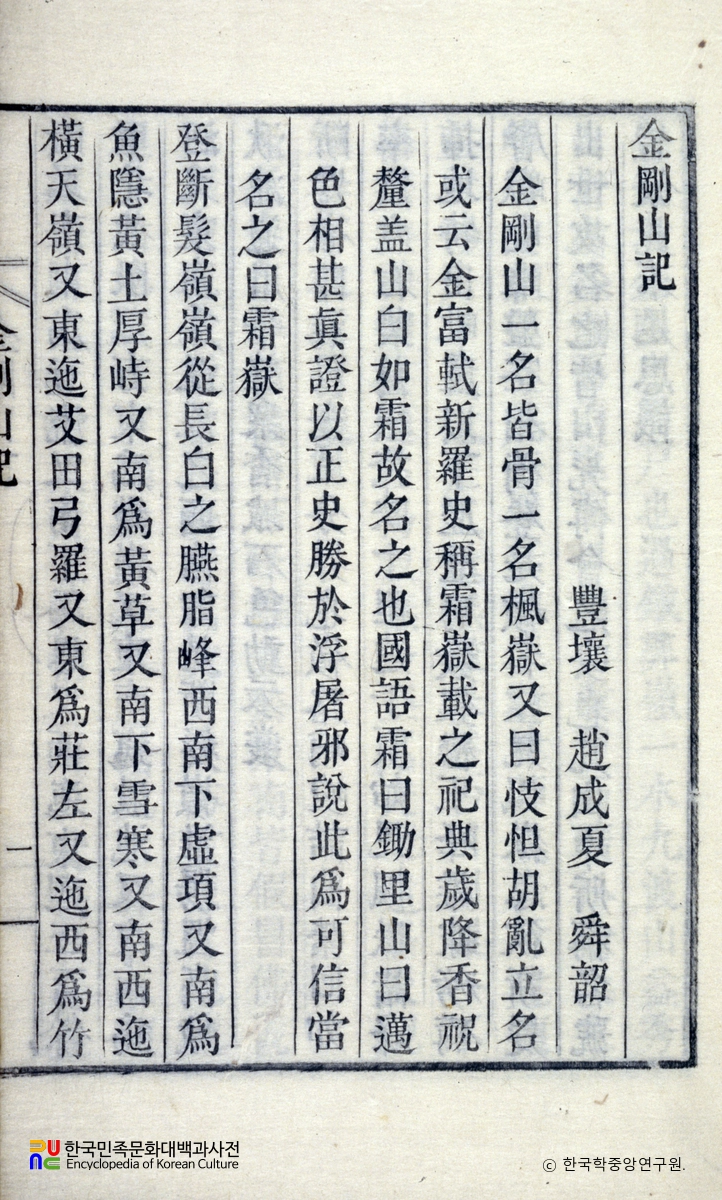 金剛山記
豐壤 趙成夏 舜韶
金剛山一名皆骨一名楓嶽又曰忮怛胡亂立名
或云金富軾新羅史稱霜嶽載之祀典歲降香祝
釐盖山白如霜故名之也國語霜曰鋤里山曰邁
色相甚眞證以正史勝於浮屠邪說此爲可信當
名之曰霜嶽
登斷髮嶺嶺從長白之臙脂峰西南下虛項又南爲
魚隱黃土厚峙又南爲黃草又南下雪寒又南西迤
橫天嶺又東迤艾田弓羅又東爲莊左又迤西爲竹
金剛山記
一
한국민족문화대백과사전
Encyclopedia of Korean Culture
ⓒ 한국학중앙연구원.